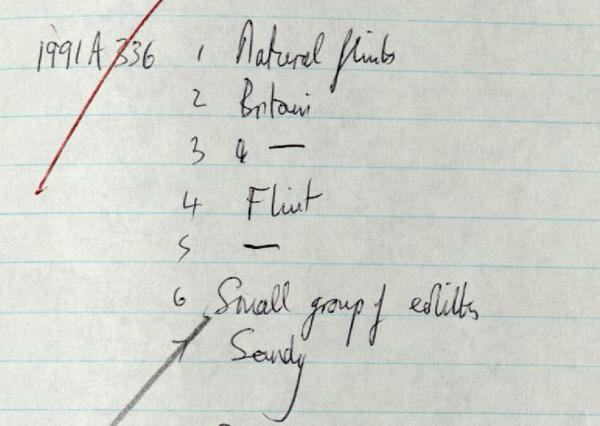 1991A 336 1 Natural flints
2 Britain
3 —
4 Flint
5 —
6 Small group of eoliths
7 Sandy